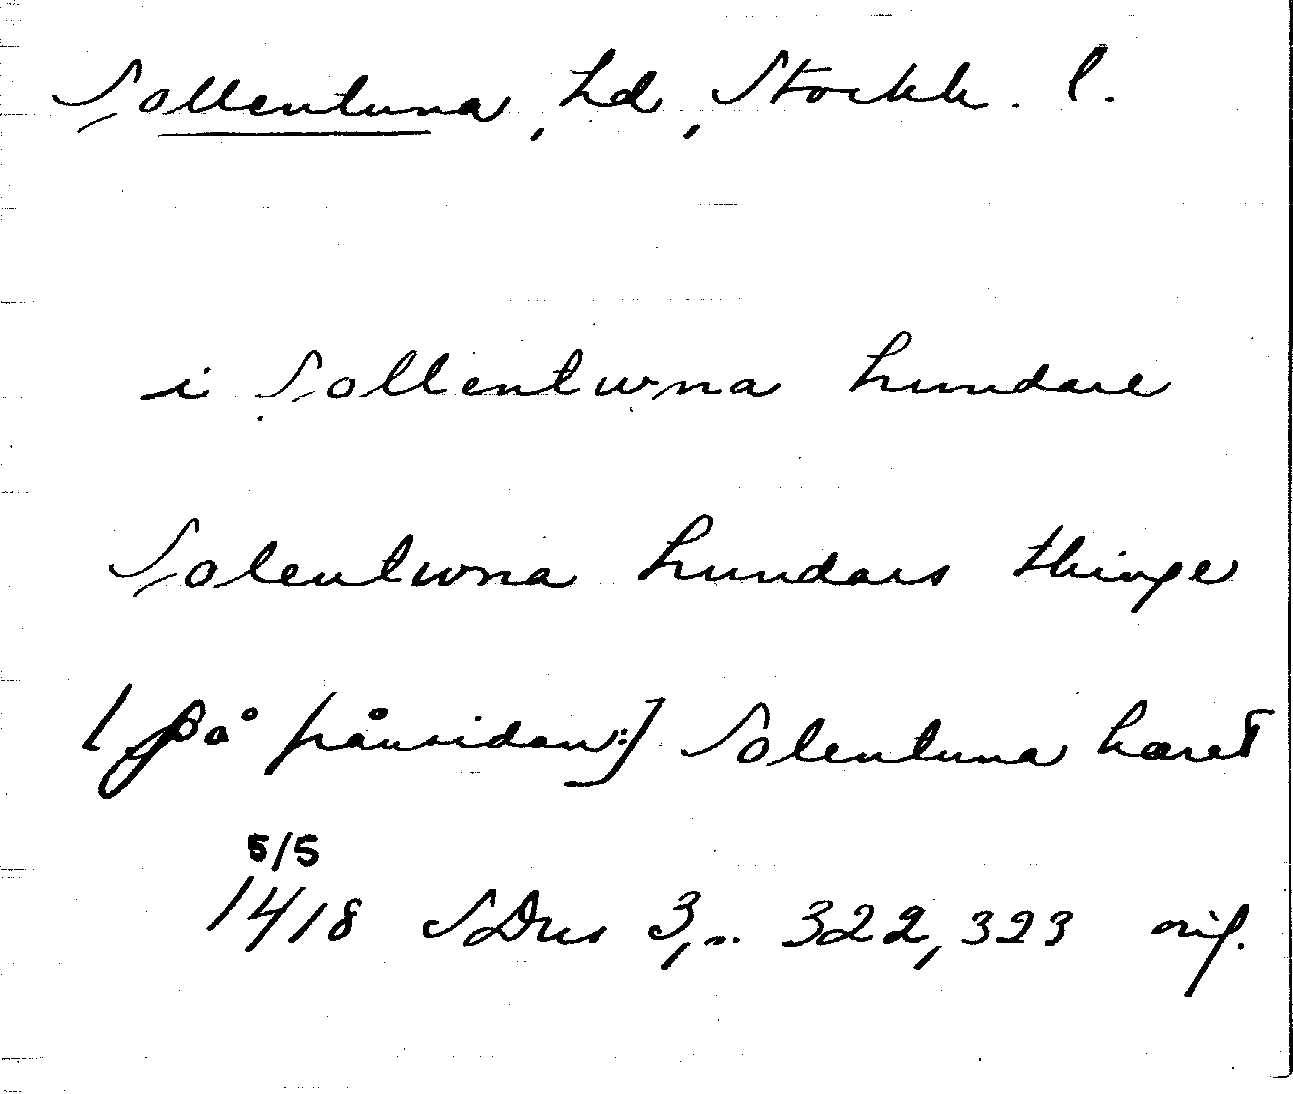 Sollentuna, hd, Stockh. l.
i Sollentuna hundare
Solentuna hundars thinge
[på frånsidan:] Solentuna hæret
5/5
1418 SDns 3, s. 322, 323 orig.